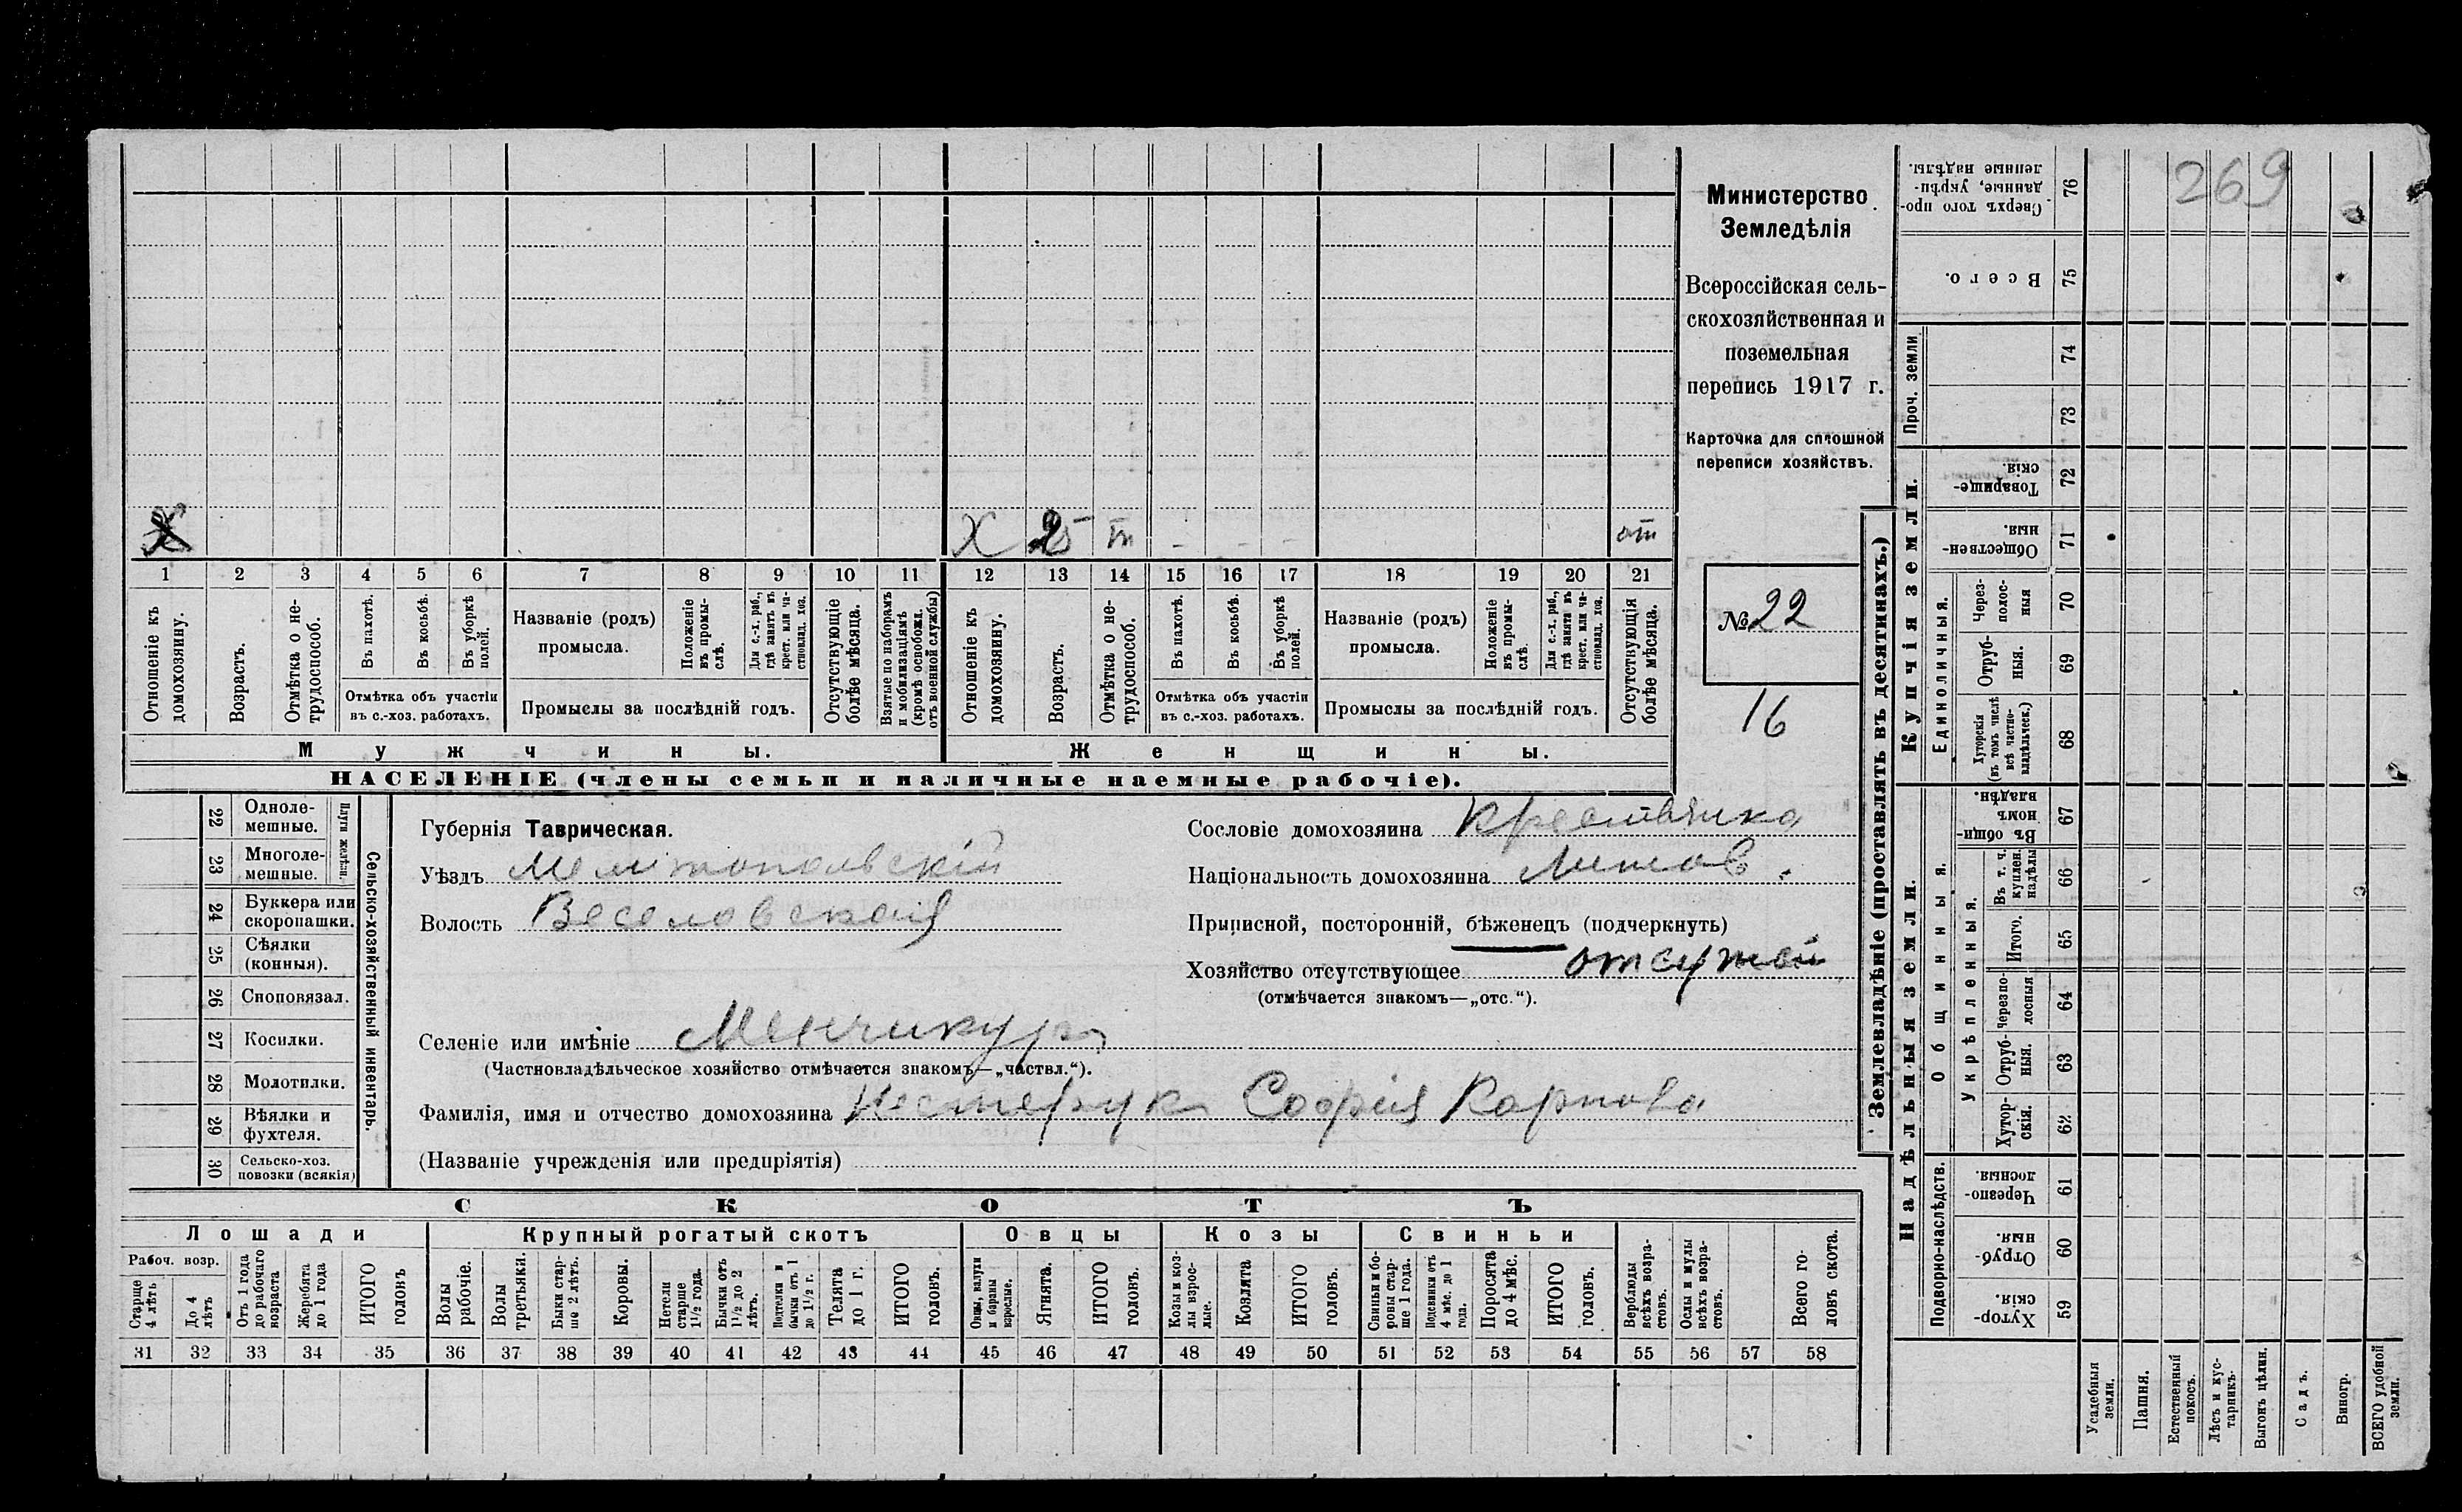 269
Министерство
Земледѣлія
Всероссійская сель-
скохозяйственная и
поземельная
перепись 1917 г.
Карточка для сплошной
переписи хозяйствъ.
№ 22
16
X
X 25 т - - - от
1 2 3 4 5 6 7 8 9 10 11 12 13 14 15 16 17 18 19 20 21
Отношеніе къ домохозяину.
Возрастъ.
Отмѣтка о не-трудоспособ.
Въ пахотѣ.
Въ косьбѣ.
Въ уборкѣ полей.
Отмѣтка объ участіи
въ с.-хоз. работахъ.
Названіе (родъ)
промысла.
Положеніе въ промы-слѣ.
Для с.-х. раб., гдѣ занятъ въ крест. или ча-стновлад. хоз.
Промыслы за послѣдній годъ.
Отсутствующіе болѣе мѣсяца.
Взятые по наборамъ и мобилизаціямъ (кромѣ освобожд. отъ военной службы)
Отношеніе къ домохозяину.
Возрастъ.
Отмѣтка о не-трудоспособ.
Въ пахотѣ.
Въ косьбѣ.
Въ уборкѣ полей.
Отмѣтка объ участіи
въ с.-хоз. работахъ.
Названіе (родъ)
промысла.
Положеніе въ промы-слѣ.
Для с.-х. раб., гдѣ заняти въ крест. или ча-стновлад. хоз.
Промыслы за послѣдній годъ.
Отсутствующія болѣе мѣсяца.
Мужчины. Женщины.
НАСЕЛЕНІЕ (члены семьи и наличные наемные рабочіе).
Сельско-хозяйственный инвентарь.
Плуги желѣзн.
22 Одноле-мешные.
23 Многоле-мешные.
24 Буккера или скоропашки.
25 Сѣялки (конныя).
26 Сноповязал.
27 Косилки.
28 Молотилки.
29 Вѣялки и фухтеля.
30 Сельско-хоз. повозки (всякія)
Губернія Таврическая.
Уѣздъ Мелитопольскій
Волость Веселовская
Сословіе домохозяина крестьянка
Національность домохозяина Литов.
Приписной, посторонній, бѣженецъ (подчеркнуть)
Хозяйство отсутствующее
(отмѣчается знакомъ—„отс.“).
Селеніе или имѣніе Менчикуръ
(Частновладѣльческое хозяйство отмѣчается знакомъ—„частвл.“).
Фамилія, имя и отчество домохозяина Нестерукъ Софія Карпова
(Названіе учрежденія или предпріятія)
СКОТЪ
Лошади Крупный рогатый скотъ Овцы Козы Свиньи
Рабоч. возр.
Старше 4 лѣтъ
До 4 лѣтъ
Отъ 1 года до рабочаго возраста
Жеребята до 1 года
ИТОГО головъ
Волы рабочіе.
Волы третьяки.
Быки стар-ше 2 лѣтъ.
Коровы.
Нетели старше 1½ года.
Бычки отъ 1½ до 2 лѣтъ.
Подтелки и бычки отъ 1 до 1½ г.
Телята до 1 г.
ИТОГО головъ.
Овцы, валухи и бараны взрослые.
Ягнята.
ИТОГО головъ.
Козы и коз-лы взрос-лые.
Козлята
ИТОГО головъ.
Свиньи и бо-ровы стар-ше 1 года.
Подсвинки отъ 4 мѣс. до 1 года.
Поросята до 4 мѣс.
ИТОГО головъ.
Верблюды всѣхъ возра-стовъ.
Ослы и мулы всѣхъ возра-стовъ.
Всего го-ловъ скота.
31 32 33 34 35 36 37 38 39 40 41 42 43 44 45 46 47 48 49 50 51 52 53 54 55 56 57 58
Землевладѣніе (проставлять въ десятинахъ.)
Надѣльныя земли.
Подворно-наслѣдств.
Хутор-скія. 59
Отруб-ныя. 60
Черезпо-лосныя. 61
Общинныя.
Укрѣпленныя.
Хутор-скія. 62
Отруб-ныя. 63
Черезпо-лосныя 64
Итого. 65
Въ т. ч. куплен. надѣлы 66
Въ общин-номъ владѣн. 67
Купчія земли.
Единоличныя.
Хуторскія (въ томъ числѣ всѣ частно-владѣльческ.) 68
Отруб-ныя. 69
Через-полос-ныя 70
Обществен-ныя. 71
Товарище-скія. 72
Проч. земли
73
74
Всего. 75
Сверхъ того про-данные, укрѣп-ленные надѣлы. 76
Усадебныя земли.
Пашня.
Естественный покосъ.
Лѣсъ и кус-тарникъ.
Выгонъ цѣлин.
Садъ.
Виногр.
ВСЕГО удобной земли.